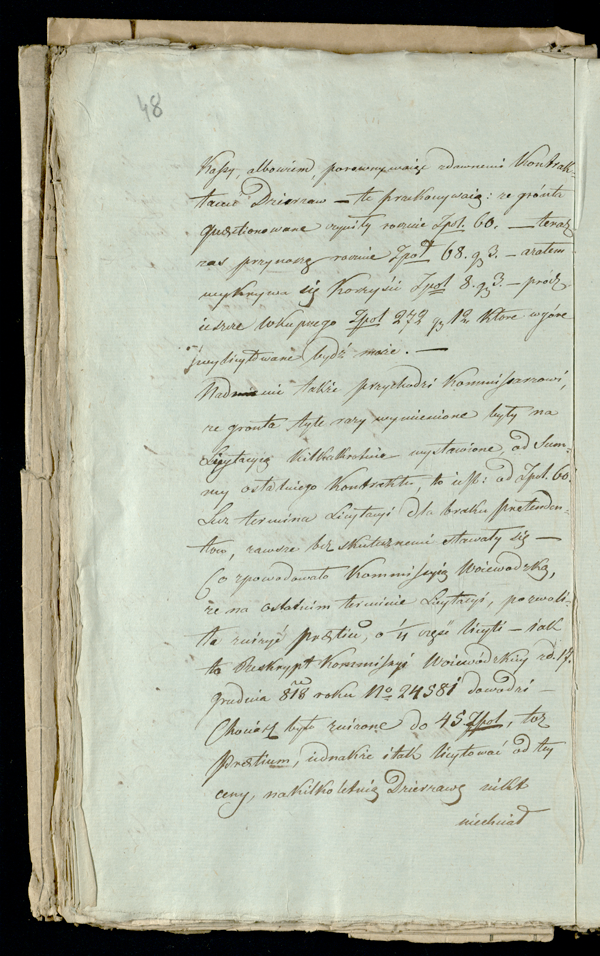 48
Kassy, albowiem, porownywaiąc zdawnemi Kontrak-
tami Dzierzaw — te przekonywaią: ze grónta
questionowane czyniły rocznie Zpol. 60. — teraz
zas przynoszą rocznie Zpol 68. g 3. — azatem
wykrywa się Korzyści Zpol 8. g 3. — prócz
ieszcze Wkupnego Zpol 272 g 12 które wgóre
wylicytowane bydź może. —
Nadmienić także przychodzi Kommissarzowi,
ze gronta tyle razy wymienione były na
Licytacyią kilkakrotnie wystawione, od Sum-
my ostatniego Kontraktu, to iest: od Zpol. 60.
Lecz termina Licytacyi dla braku pretenden-
tow, zawsze bezskutecznemi stawały się —
Co spowodowało Kommissyią Woiewodzką,
że na ostatnim terminie Licytacyi, pozwoli-
ła znizyć Prætium, o ¼ część licyti — iak
to Reskrypt Kommissyi Woiewodzkiey zd. 17.
grudnia 818 roku No 24581 dowodzi —
Chociaż było znizone do 45 Zpol, toz
Prætium, iednakże i tak licytować od tey
ceny, nakilkoletnią Dzierzawę nikt
niechciał